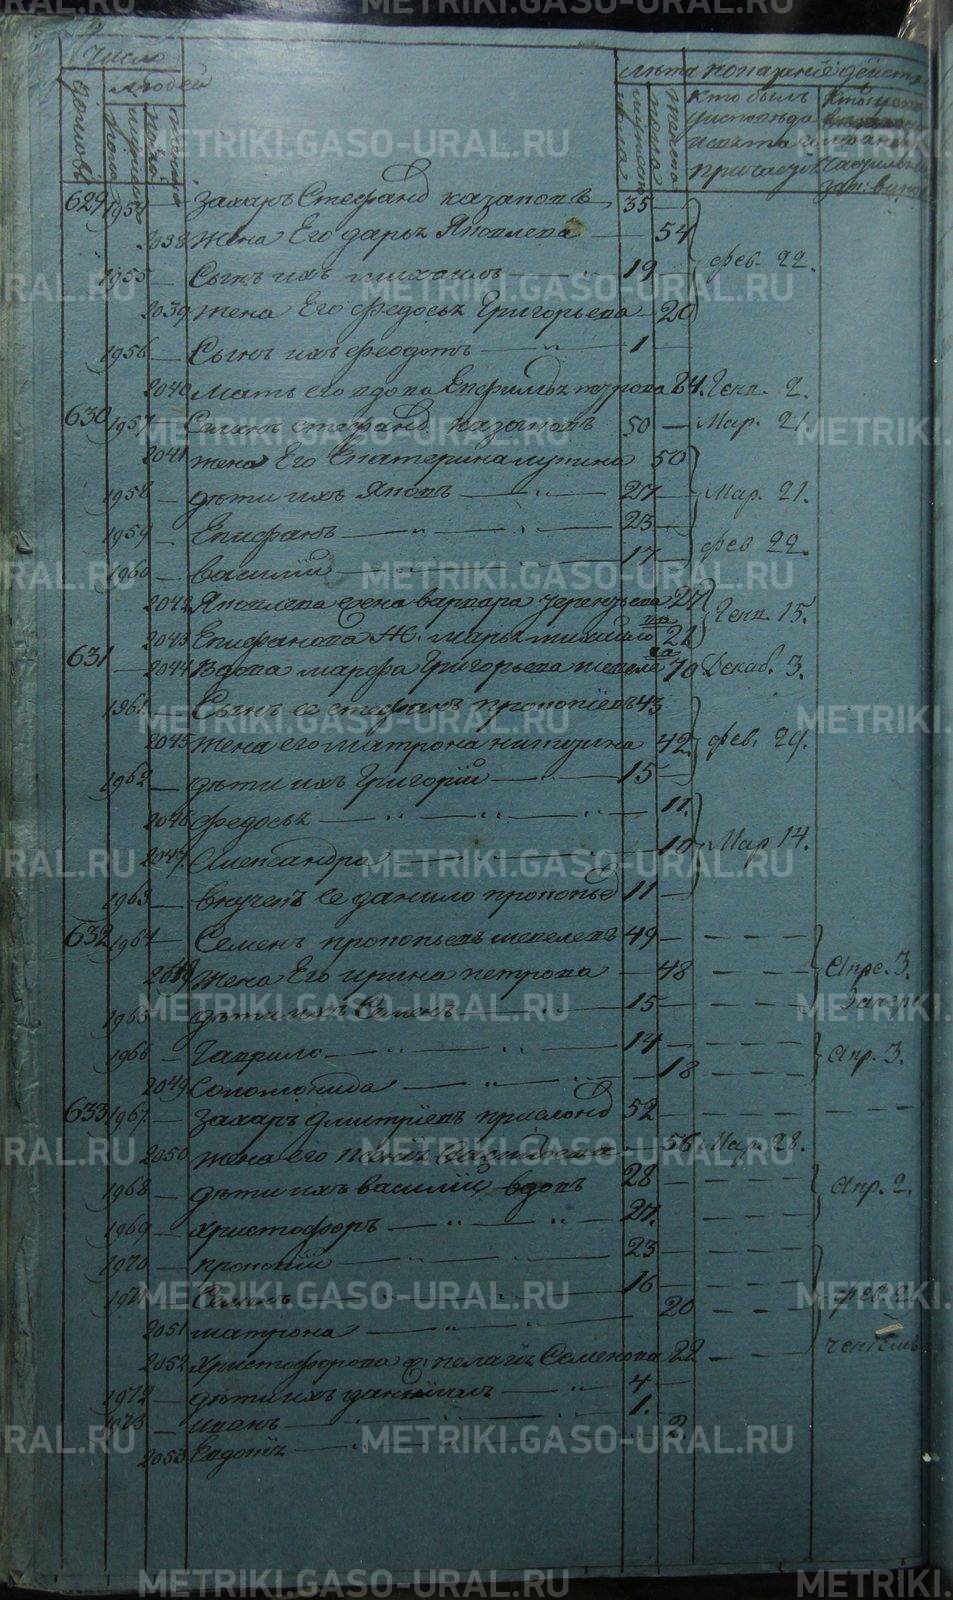 Число
Людей
Домовъ
мужеска
пола
женска
Лѣта
мужеска
пола
женска
показанiе дѣйств
Кто былъ
у исповѣди
и святаго
причастiя
629 1954 — Захаръ Стефанов Казаковъ 35 —
2038 Жена Его Дарья Яковлева — 54
1955 — Сынъ ихъ Михаилъ — 19 — Фев. 22.
2039 Жена Его Федосья Григорьева — 20
1956 — Сынъ ихъ Феодотъ — 1 —
2040 Мать его вдова Евфимья Петрова 84. Генв. 2.
630 1957 — Семенъ Стефанов Казаковъ 50 — Мар. 21.
2041 Жена Его Екатерина Лупина 50
1958 — дѣти ихъ Яковъ — 27 — Мар. 21.
1959 — Епифанъ — 23 —
1960 — Василiй — 17 — Фев 22.
2042 Яковлева жена Варвара Терентьева 27
2043 Епифанова Ж. Марья Михайло 21 Генв. 15.
631 — 2044 Вдова Марфа Григорьева Шепеле 70 Декаб. 3.
1961 Сынъ ее Стефанъ Прокопiевъ 43
2045 Жена его Матрона Никитина 42. Фев. 29.
1962 — дѣти ихъ Григорiй — 15 —
2046 Федосья — 11.
2047. Александра — 10 Мар 14.
1963 — внучекъ Ее Данило Прокопьев 11 —
632 1964 — Семенъ Прокопьевъ Шепелевъ 49 —
2048 Жена Его Ирина Петрова — 48 — Апре. 3.
1965 — дѣти ихъ Семенъ — 15 —
1966 — Гаврило — 14 —
2049 Соломонида — 18 — Апр. 3.
633 1967. Захаръ Дмитрiевъ 52 —
2050 Жена его 56 Мар. 28.
1968 — дѣти ихъ Василiй вдовъ 28 — Апр. 2.
1969 — Христофоръ — 27. —
1970 — Прокопiй — 23 —
1971 — Семенъ — 16 —
2051 Матрона — 20 —
2052 Христофорова ж. Пелагiя Семенова 22 —
1972 — дѣти ихъ Данiилъ — 4 —
1973 — Иванъ — 1.
2053 Евдокiя — 3
METRIKI.GASO-URAL.RU